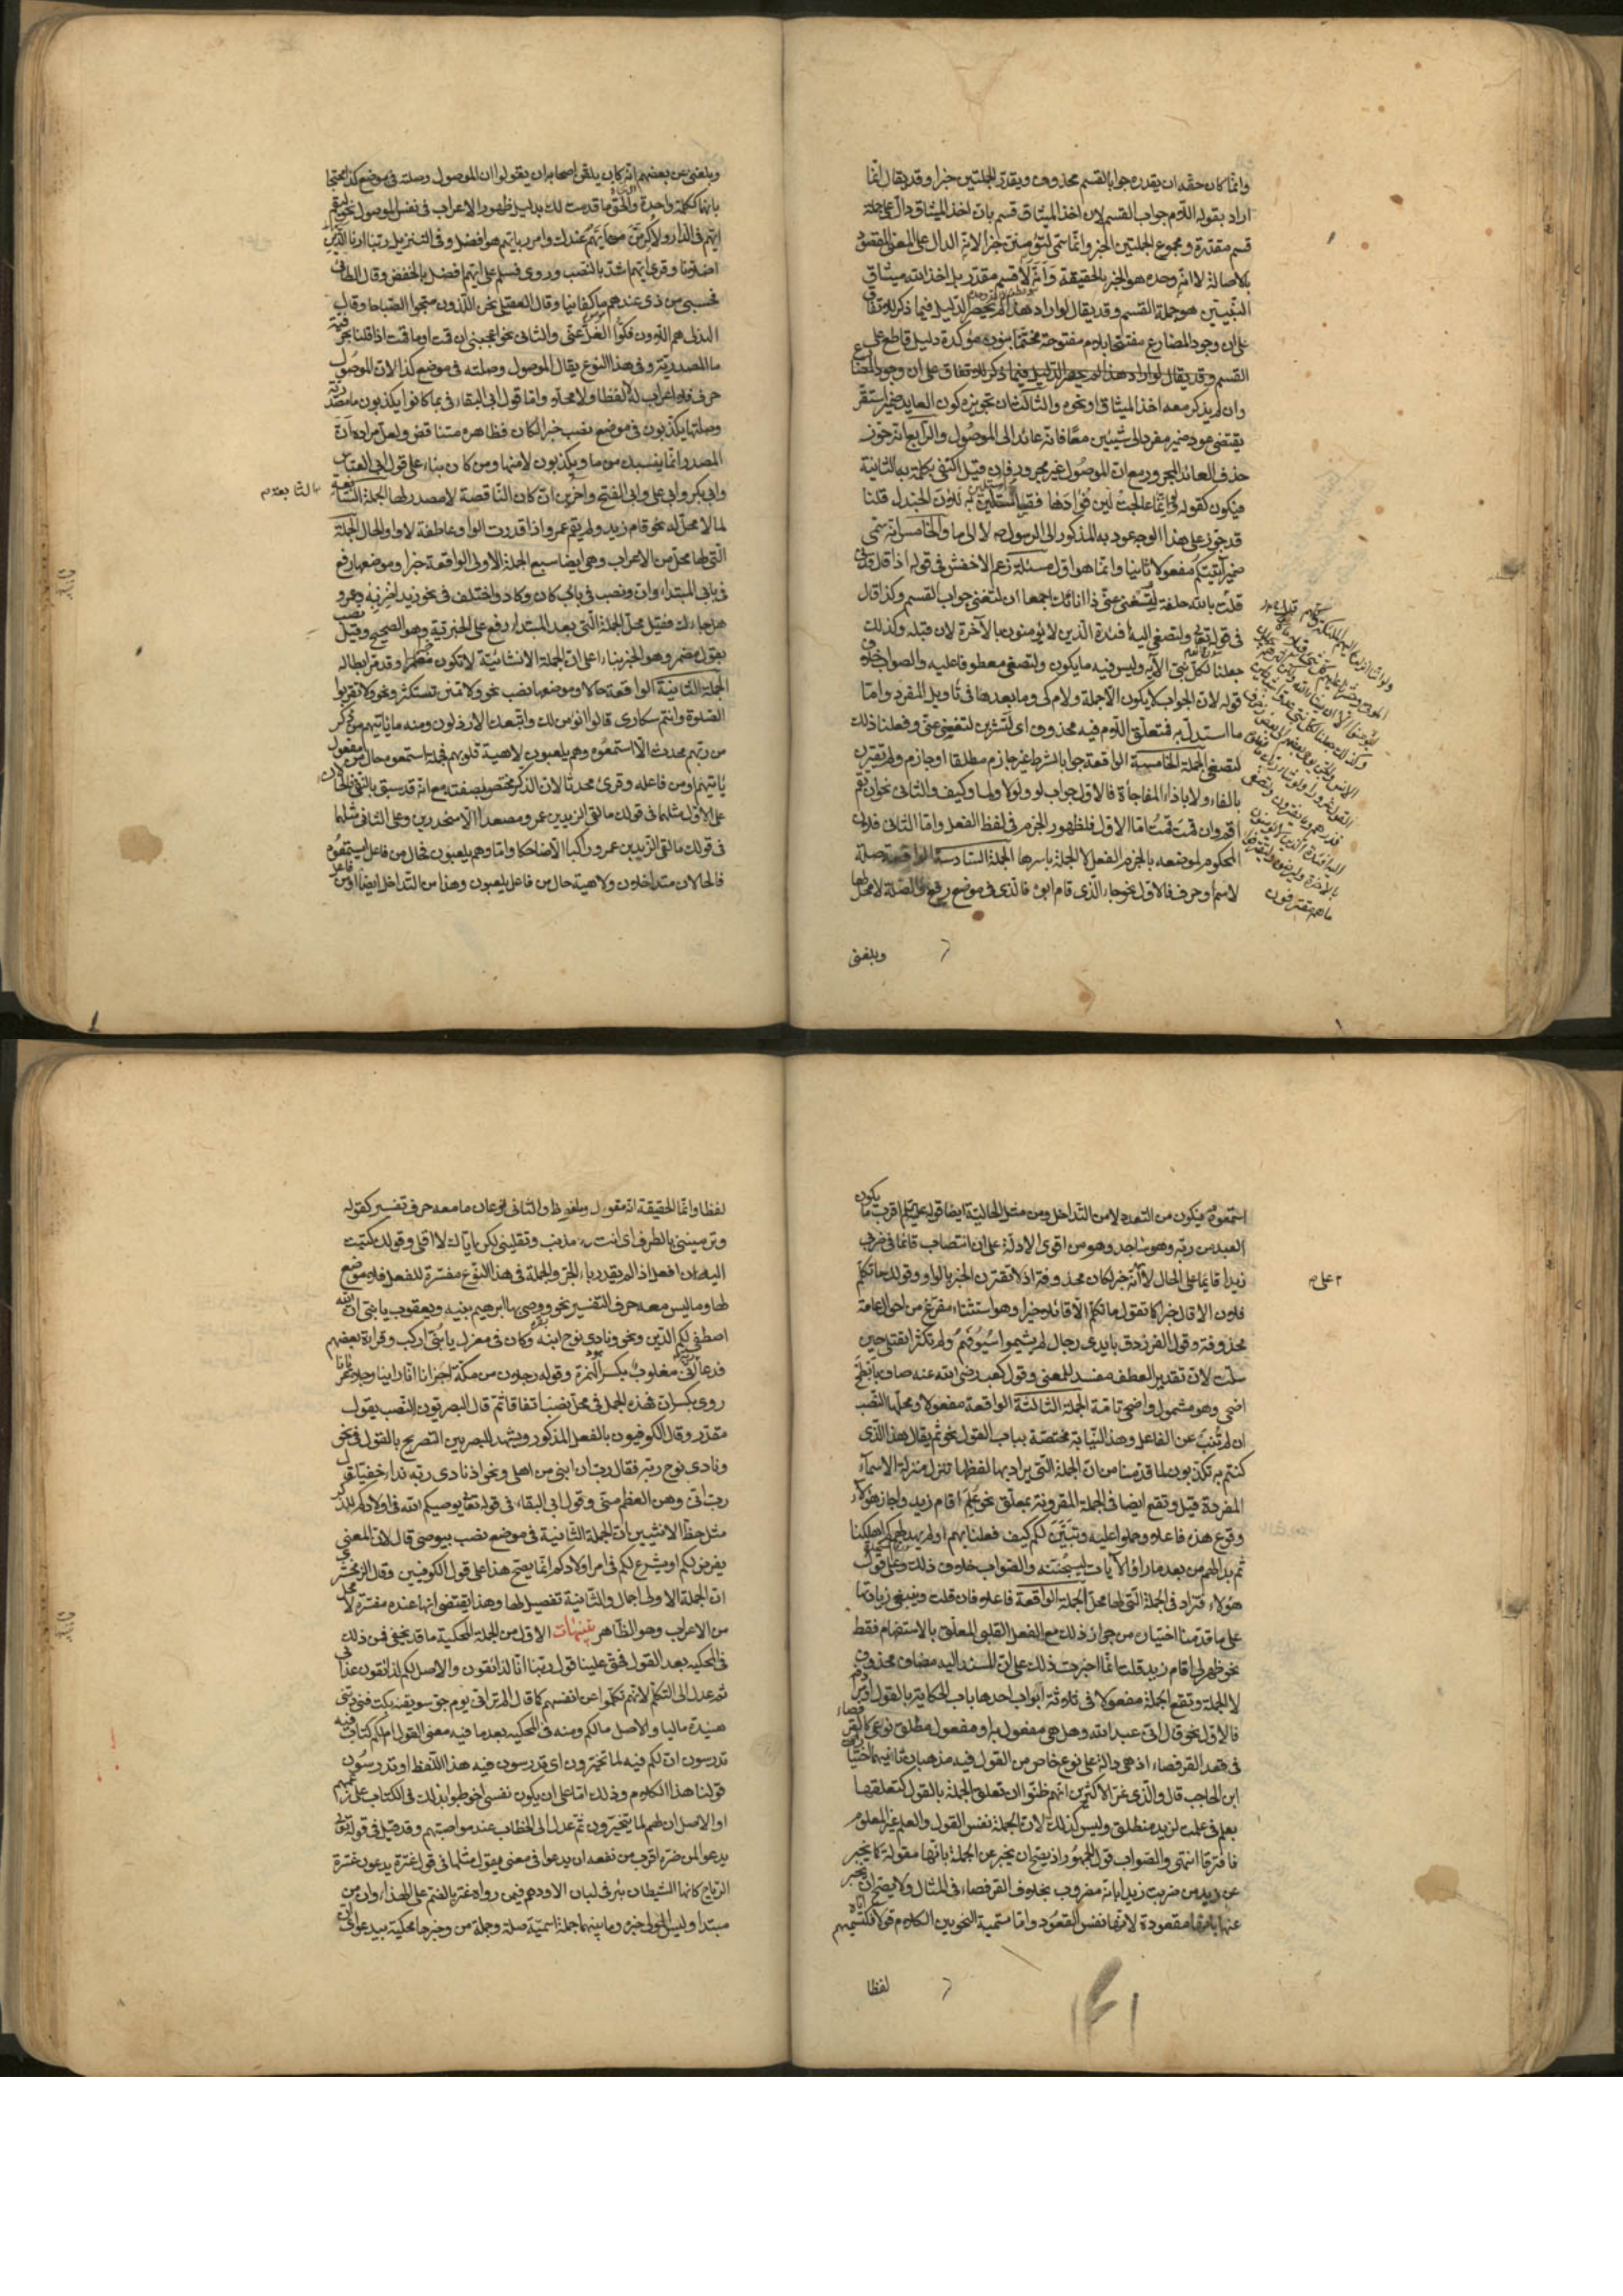 وانما كان حقه ان يقدره جوابا لقسم محذوف ويقدر الجملتين خبرا وقد يقال انما
اراد بقوله اللام جواب القسم لان اخذ الميثاق قسم بان اخذ الميثاق دال على جملة
قسم مقدرة ومجموع الجملتين الخبر وانما سمى لتؤمنن خبرا لانه الدال على المعنى المقصود
بالاصالة لا انه وحده هو الخبر بالحقيقة وانه لا قسم مقدر بل اخذ الله ميثاق
النبيين هو جملة القسم وقد يقال لو اراد هذا لم يحصر الدليل فيما ذكر للاتفاق
على ان وجود المضارع مفتتحا بلام مفتوحة مختتما بنون مؤكدة دليل قاطع على
القسم وقد يقال لو اراد هذا لم يحصر الدليل فيما ذكر للاتفاق على ان وجود المضارع
وان لم يذكر معه اخذ الميثاق او نحوه والثالث ان تجويزه كون العائد ضمير استقر
يقتضى عود ضمير مفرد الى شيئين معا فانه عائد الى الموصول والرابع انه جوز
حذف العائد المجرور مع ان الموصول غير مجرور فان قيل اكتفى بكلمة به الثانية
فيكون كقوله
قد جوز على هذا الوجه عود به المذكور الى الرسول صم لا الى ما والخامس انه سمى
ضمير آتيتكم مفعولا ثانيا وانما هو اول مسئلة زعم الاخفش فى قوله اذا قال قدنى
قلت بالله حلفة لتغنى عنى ذا انائك اجمعا ان لتغنى جواب القسم وكذا قال
فى قوله تعالى ولتصغى اليه افئدة الذين لا يؤمنون بالآخرة لان قبله وكذلك
جعلنا لكل نبى الآية وليس فيه ما يكون ولتصغى معطوفا عليه والصواب خلاف
قوله لان الجواب لا يكون الا جملة ولام كى وما بعدها فى تأويل المفرد واما
ما استدل به فمتعلق اللام فيه محذوف اى لتشربن لتغنى عنى وفعلنا ذلك
لتصغى الجملة الخامسة الواقعة جوابا لشرط غير جازم مطلقا او جازم ولم تقترن
بالفاء ولا باذا المفاجأة فالاول جواب لو ولولا ولما وكيف والثانى نحو ان تقم
اقم وان قمت قمت اما الاول فلظهور الجزم فى لفظ الفعل واما الثانى فلان
المحكوم لموضعه بالجزم الفعل لا الجملة باسرها الجملة السادسة الواقعة صلة
لاسم او حرف فالاول نحو جاء الذى قام ابوه فالذى فى موضع رفع والصلة لا محل لها
وبلغنى
وبلغنى عن بعضهم انه كان يلقن اصحابه ان يقولوا ان الموصول وصلته فى موضع كذا محتجا
بانهما ككلمة واحدة والحق ما قدمت لك بدليل ظهور الاعراب فى نفس الموصول نحو ليقم
ايهم فى الدار ولاكرمن ايهم عندك وامرر بايهم هو افضل وفى التنزيل ربنا ارنا الذين
اضلانا وقرئ ايهم اشد بالنصب وروى فسلم على ايهم افضل بالخفض وقال الطائى
فحسبى من ذى عندهم ما كفانيا وقال العقيلى نحن اللذون صبحوا الصباحا وقال
الهذلى هم اللاؤن فكوا الغل عنى والثانى نحو اعجبنى ان قمت او ما قمت اذا قلنا بحرفية
ما المصدرية وفى هذا النوع يقال الموصول وصلته فى موضع كذا لان الموصول
حرف فلا اعراب له لا لفظا ولا محلا واما قول ابى البقاء فى بما كانوا يكذبون ما مصدرية
وصلتها يكذبون فى موضع نصب خبرا لكان فظاهره متناقض ولعل مراده ان
المصدر انما ينسبك من ما ويكذبون لا منها ومن كان بناء على قول ابى العباس
وابى بكر وابى على وابى الفتح وآخرين ان كان الناقصة لا مصدر لها الجملة السابعة
لما لا محل له نحو قام زيد ولم يقم عمرو اذا قدرت الواو عاطفة لا واو الحال الجملة
التى لها محل من الاعراب وهى ايضا سبع الجملة الاولى الواقعة خبرا وموضعها رفع
فى بابى المبتدا وان ونصب فى بابى كان وكاد واختلف فى نحو زيد اضربه وعمرو
هل جاءك فقيل محل الجملة التى بعد المبتدا رفع على الخبرية وهو الصحيح وقيل نصب
بقول مضمر وهو الخبر بناء على ان الجملة الانشائية لا تكون خبرا وقد مر ابطاله
الجملة الثانية الواقعة حالا وموضعها نصب نحو ولا تمنن تستكثر ونحو ولا تقربوا
الصلوة وانتم سكارى قالوا انؤمن لك واتبعك الارذلون ومنه ما ياتيهم من ذكر
من ربهم محدث الا استمعوه وهم يلعبون لاهية قلوبهم فجملة استمعوه حال من مفعول
ياتيهم او من فاعله وقرئ محدثا لان الذكر مختص بصفته مع انه قد سبق بالنفى فالحالان
على الاول مثلهما فى قولك ما لقى الزيدين عمرو مصعدا الا منحدرين وعلى الثانى مثلهما
فى قولك ما لقى الزيدين عمرو راكبا الا ضاحكا واما وهم يلعبون فحال من فاعل استمعوه
فالحالان متداخلان ولاهية حال من فاعل يلعبون وهذا من التداخل ايضا او من فاعل
استمعوه فيكون من التعدد لا من التداخل ومن مثل الحالية ايضا قوله عليه السلام اقرب ما يكون
العبد من ربه وهو ساجد وهو من اقوى الادلة على ان انتصاب قائما فى ضربى
زيدا قائما على الحال لا انه خبر لكان محذوفة اذ لا تقترن الخبر بالواو وقولك ما تكلم
فلان الا قال خيرا كما تقول ما تكلم الا قائلا خيرا وهو استثناء مفرغ من احوال عامة
محذوفة وقول الفرزدق بايدى رجال لم يشيموا سيوفهم ولم تكثر القتلى بها حين
سلت لان تقدير العطف مفسد للمعنى وقول كعب رضى الله عنه صاف بابطح
اضحى وهو مشمول واضحى تامة الجملة الثالثة الواقعة مفعولا ومحلها النصب
ان لم تنب عن الفاعل وهذه النيابة مختصة بباب القول نحو ثم يقال هذا الذى
كنتم به تكذبون لما قدمنا من ان الجملة التى يراد بها لفظها تنزل منزلة الاسماء
المفردة قيل وتقع ايضا فى الجملة المقرونة بمعلق نحو علم اقام زيد واجاز هؤلاء
وقوع هذه فاعلا وحملوا عليه وتبين لكم كيف فعلنا بهم اولم يهد لهم كم اهلكنا
ثم بدا لهم من بعد ما راوا الآيات ليسجننه والصواب خلاف ذلك وعلى قول
هؤلاء فتزاد فى الجملة التى لها محل الجملة الواقعة فاعلا فان قلت وينبغى زيادتها
على ما قدمت اختياره من جواز ذلك مع الفعل القلبى المعلق بالاستفهام فقط
نحو ظهر لى اقام زيد قلت انما اجزت ذلك على ان المسند اليه مضاف محذوف
لا الجملة وتقع الجملة مفعولا فى ثلاثة ابواب احدها باب الحكاية بالقول او مرادفه
فالاول نحو قال انى عبد الله وهل هى مفعول به او مفعول مطلق نوعى كالقرفصاء
فى قعد القرفصاء اذ هى دالة على نوع خاص من القول فيه مذهبان ثانيهما اختيار
ابن الحاجب قال والذى غر الاكثرين انهم ظنوا ان تعلق الجملة بالقول كتعلقها
بعلم فى علمت لزيد منطلق وليس كذلك لان الجملة نفس القول والعلم غير المعلوم
فافترقا انتهى والصواب قول الجمهور اذ يصح ان يخبر عن الجملة بانها مقولة كما يخبر
عن زيد من ضربت زيدا بانه مضروب بخلاف القرفصاء فى المثال ولا يصح ان يخبر
عنها بانها مقعودة لانها نفس القعود واما تسمية النحويين الكلام قولا فكتسميتهم اياه
لفظا
لفظا وانما الحقيقة انه مقول وملفوظ والثانى نوعان ما معه حرف تفسير كقوله
وترميننى بالطرف اى انت مذنب وتقليننى لكن اياك لا اقلى وقولك كتبت
اليه ان افعل اذا لم يقدر باء الجر والجملة فى هذا النوع مفسرة للفعل فلا موضع
لها وما ليس معه حرف التفسير نحو ووصى بها ابرهيم بنيه ويعقوب يا بنى ان الله
اصطفى لكم الدين ونحو ونادى نوح ابنه وكان فى معزل يا بنى اركب وقراءة بعضهم
فدعا ربه انى مغلوب بكسر الهمزة وقوله رجلان من مكة اخبرانا انا راينا رجلا عريانا
روى بكسر ان فهذه الجمل فى محل نصب اتفاقا ثم قال البصريون النصب بقول
مقدر وقال الكوفيون بالفعل المذكور ويشهد للبصريين التصريح بالقول فى نحو
ونادى نوح ربه فقال رب ان ابنى من اهلى ونحو اذ نادى ربه نداء خفيا قال
رب انى وهن العظم منى وقول ابى البقاء فى قوله تعالى يوصيكم الله فى اولادكم للذكر
مثل حظ الانثيين ان الجملة الثانية فى موضع نصب بيوصى قال لان المعنى
يفرض لكم او يشرع لكم فى امر اولادكم انما يصح هذا على قول الكوفيين وقال الزمخشرى
ان الجملة الاولى اجمال والثانية تفصيل لها وهذا يقتضى انها عنده مفسرة لا محل
من الاعراب وهو الظاهر تنبيهات الاول من الجملة المحكية ما قد يخفى فمن ذلك
فى المحكية بعد القول فحق علينا قول ربنا انا لذائقون والاصل انكم لذائقون عذابى
ثم عدل الى التكلم لانهم تكلموا عن انفسهم كما قال
هنيدة ماليا والاصل مالك ومنه فى المحكية بعد ما فيه معنى القول ام لكم كتاب فيه
تدرسون ان لكم فيه لما تخيرون اى تدرسون فيه هذا اللفظ او تدرسون
قولنا هذا الكلام وذلك اما على ان يكون نفسى خوطبوا بذلك فى الكتاب على زعمهم
او الاصل ان لهم لما يتخيرون ثم عدل الى الخطاب عند مواجهتهم وقد قيل فى قوله تعالى
يدعو لمن ضره اقرب من نفعه ان يدعو فى معنى يقول مثلها فى قول عنترة يدعون عنتر
الرماح كانها اشطان بئر فى لبان الادهم فيمن رواه عنتر بالضم على النداء وان من
مبتدا ولبئس المولى خبره وما بينهما جملة اسمية صلة وجملة من وخبرها محكية بيدعو اى ان